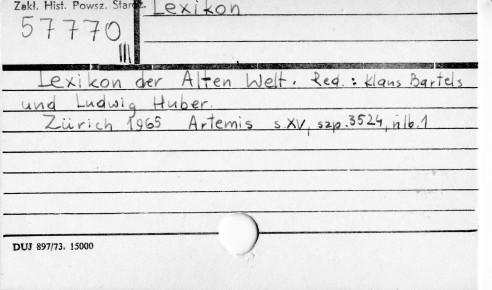 Zakł. Hist. Powsz. Staroż.
57770
III
Lexikon
Lexikon der Alten Welt. Red.: Klaus Bartels
und Ludwig Huber.
Zürich 1965 Artemis s. XV, szp. 3524, nlb. 1
DUJ 897/73. 15000